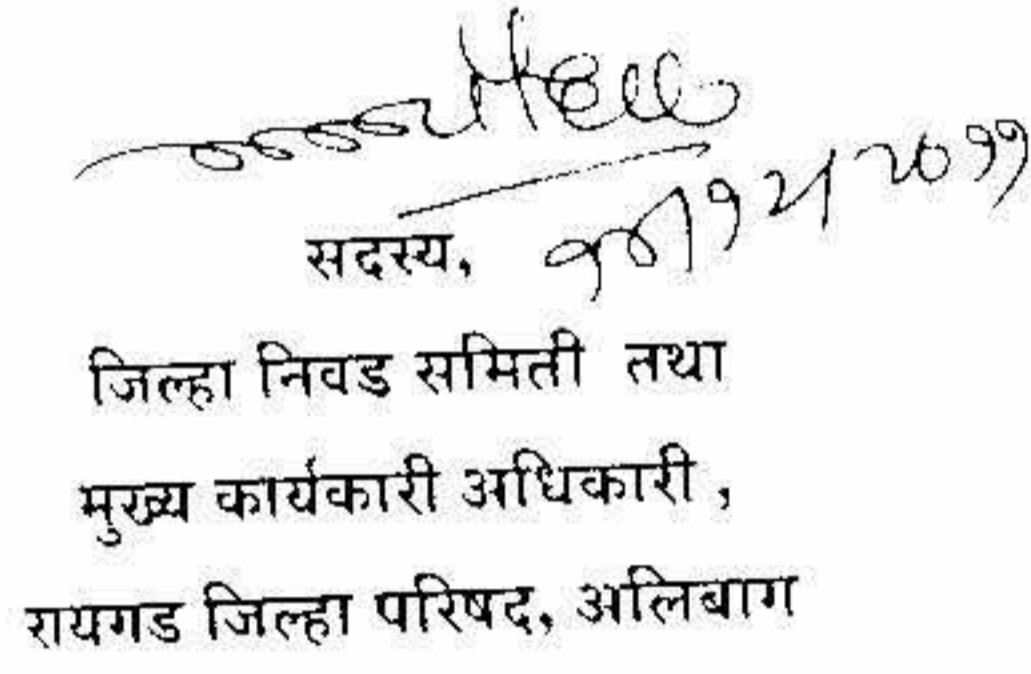 सदस्य,
जिल्हा निवड समिती तथा
मुख्य कार्यकारी अधिकारी ,
रायगड जिल्हा परिषद, अलिबाग